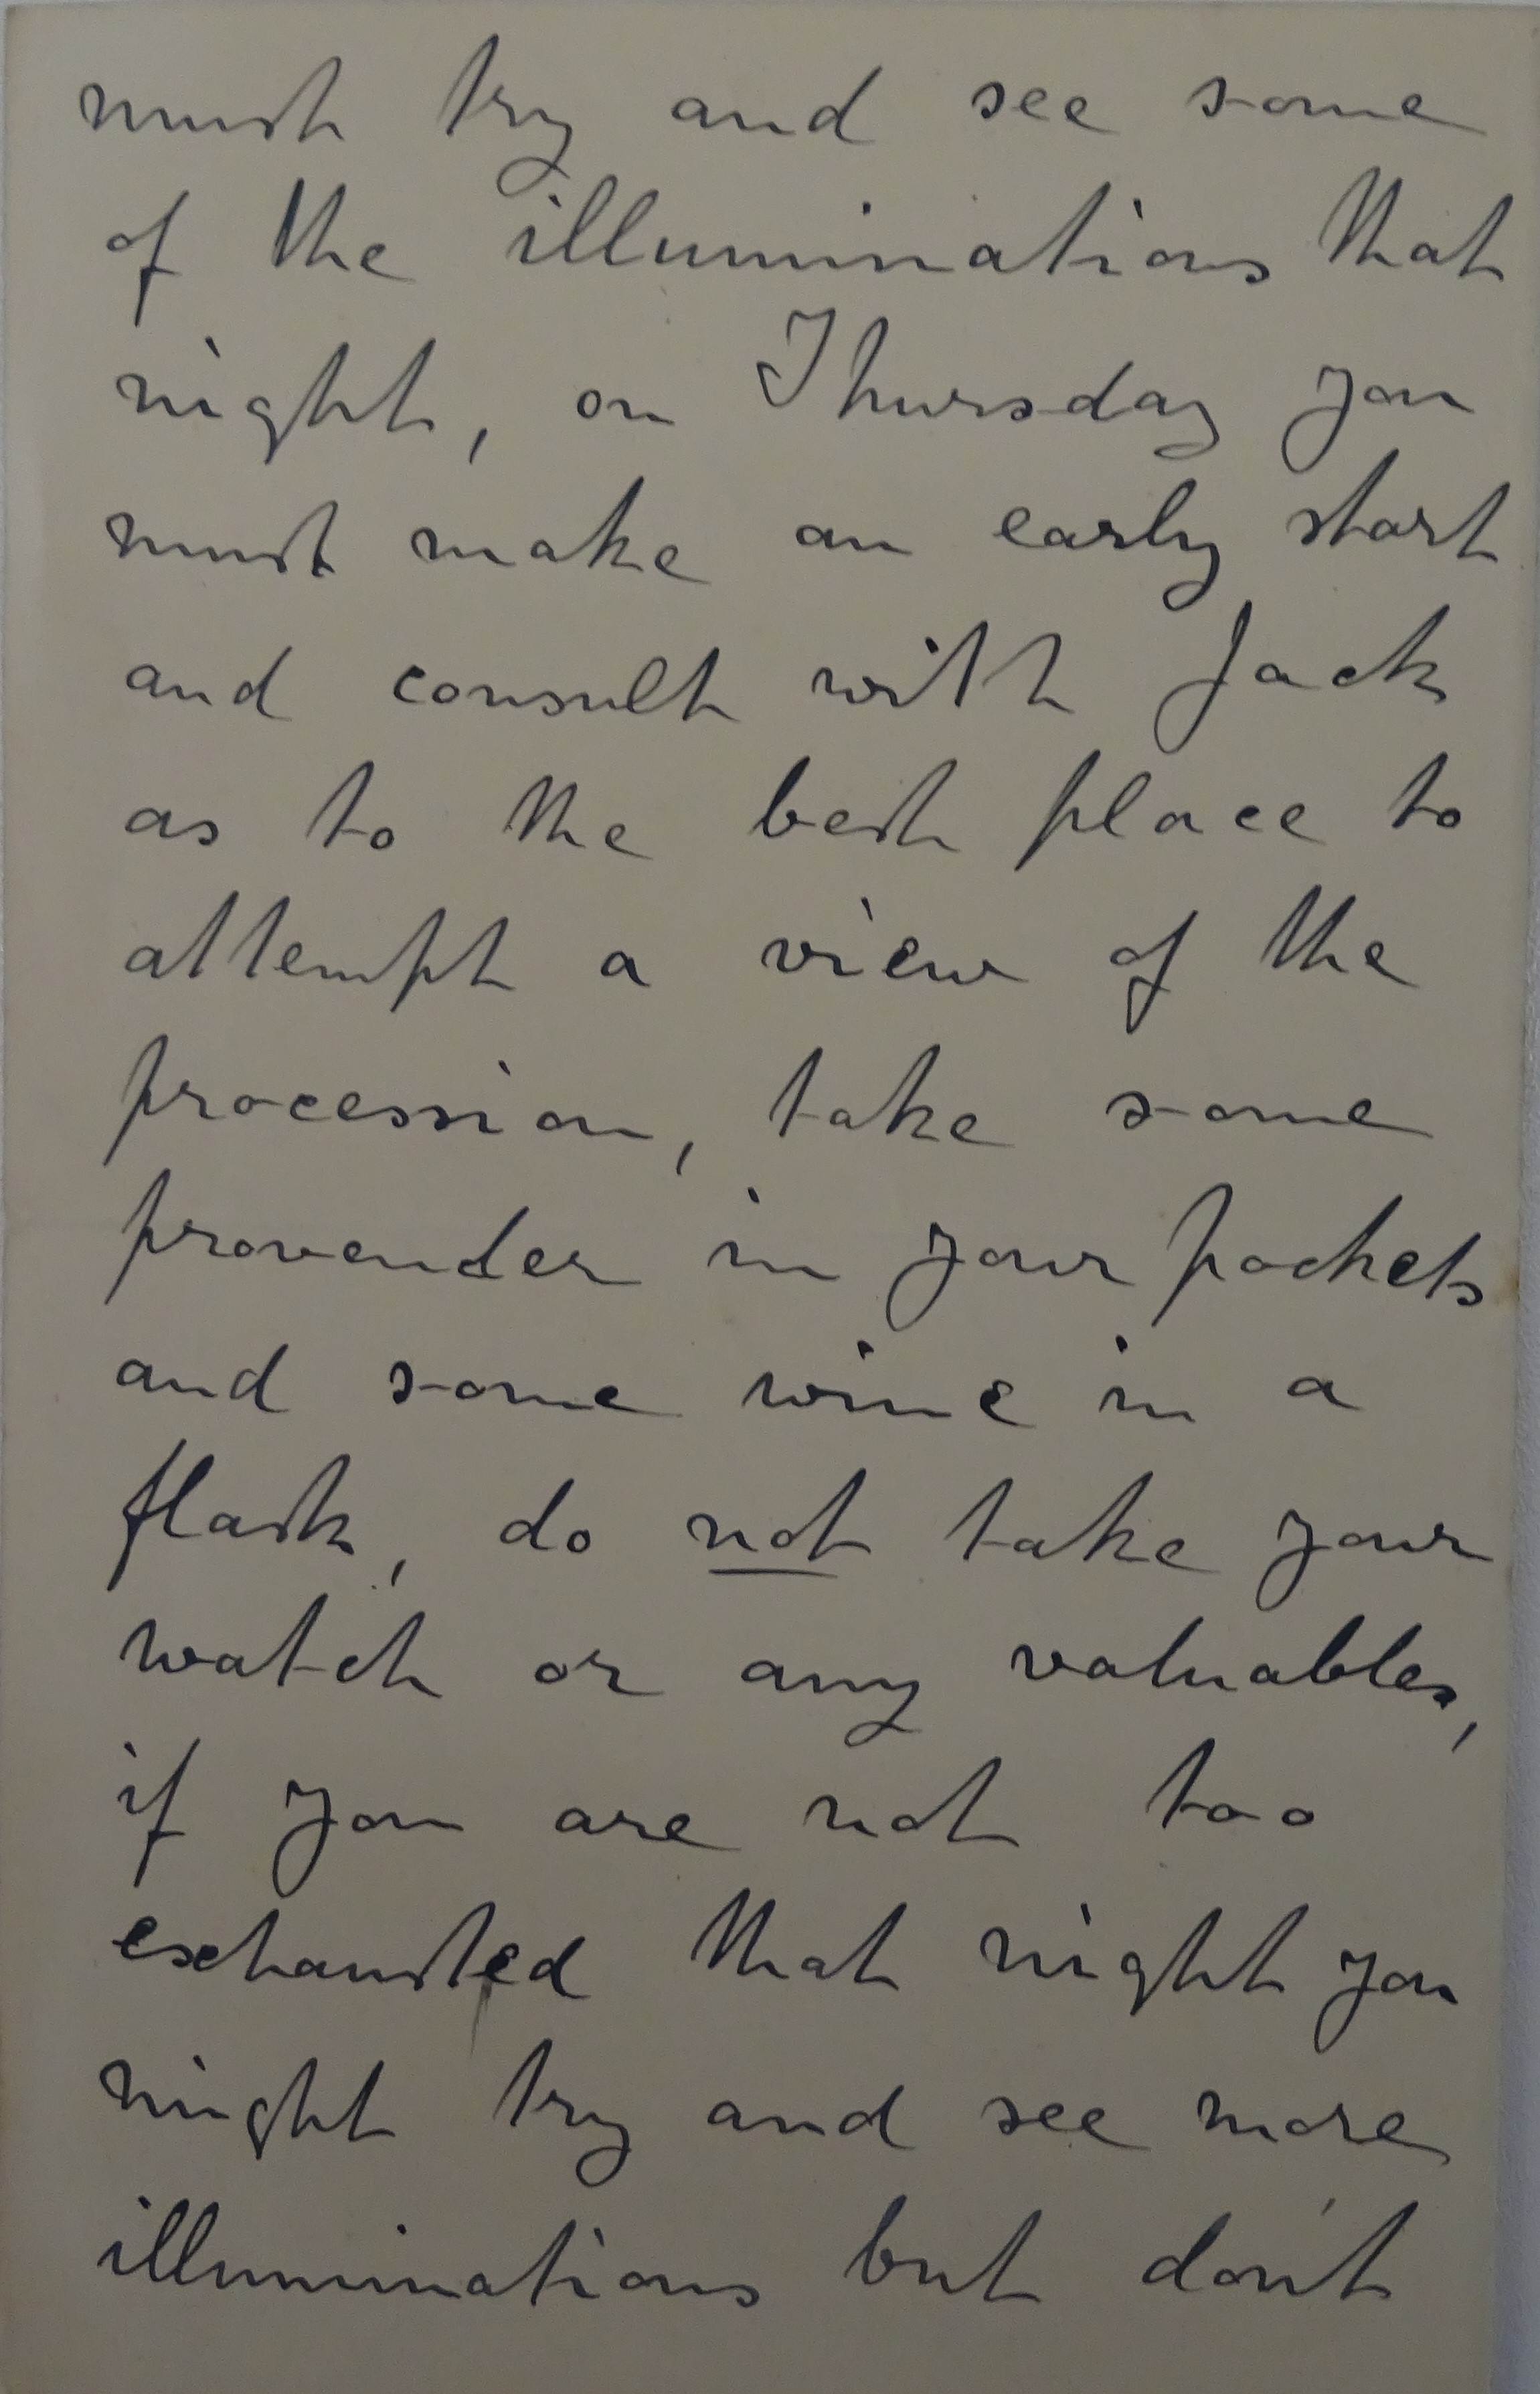 must try and see some
of the illuminations that
night, on Thursday you
must make an early start
and consult with Jack
as to the best place to
attempt a view of the
procession, take some
provender in your pockets
and some wine in a
flask, do not take your
watch or any valuables,
if you are not too
exhausted that night you
might try and see more
illuminations but don't